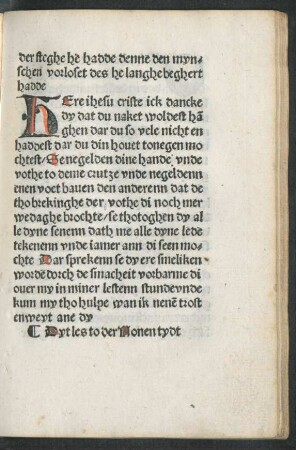 der steghe he hadde denne den myn-
schen vorloset des he langhe beghert
hadde
HEre ihesu criste ick dancke
dy dat du naket woldest hā
ghen dar du so vele nicht en
haddest dar du din houet tonegen mo
chtest/ Se negelden dine hande vnde
vothe to deme crutze vnde negeldenn
enen voet bauen den anderenn dat de
thobrekinghe der vothe di noch mer
wedaghe brochte/ se thotoghen dy al
le dyne senenn dath me alle dyne lede
tekenenn vnde iamer ann di seen mo-
chte Dar sprekenn se dy ere smeliken
worde dorch de smacheit vorbarme di
ouer my in miner lestenn stunde vnde
kum my tho hulpe wan ik nenē trost
en weyt ane dy
¶ Dyt les to der Nonen tydt